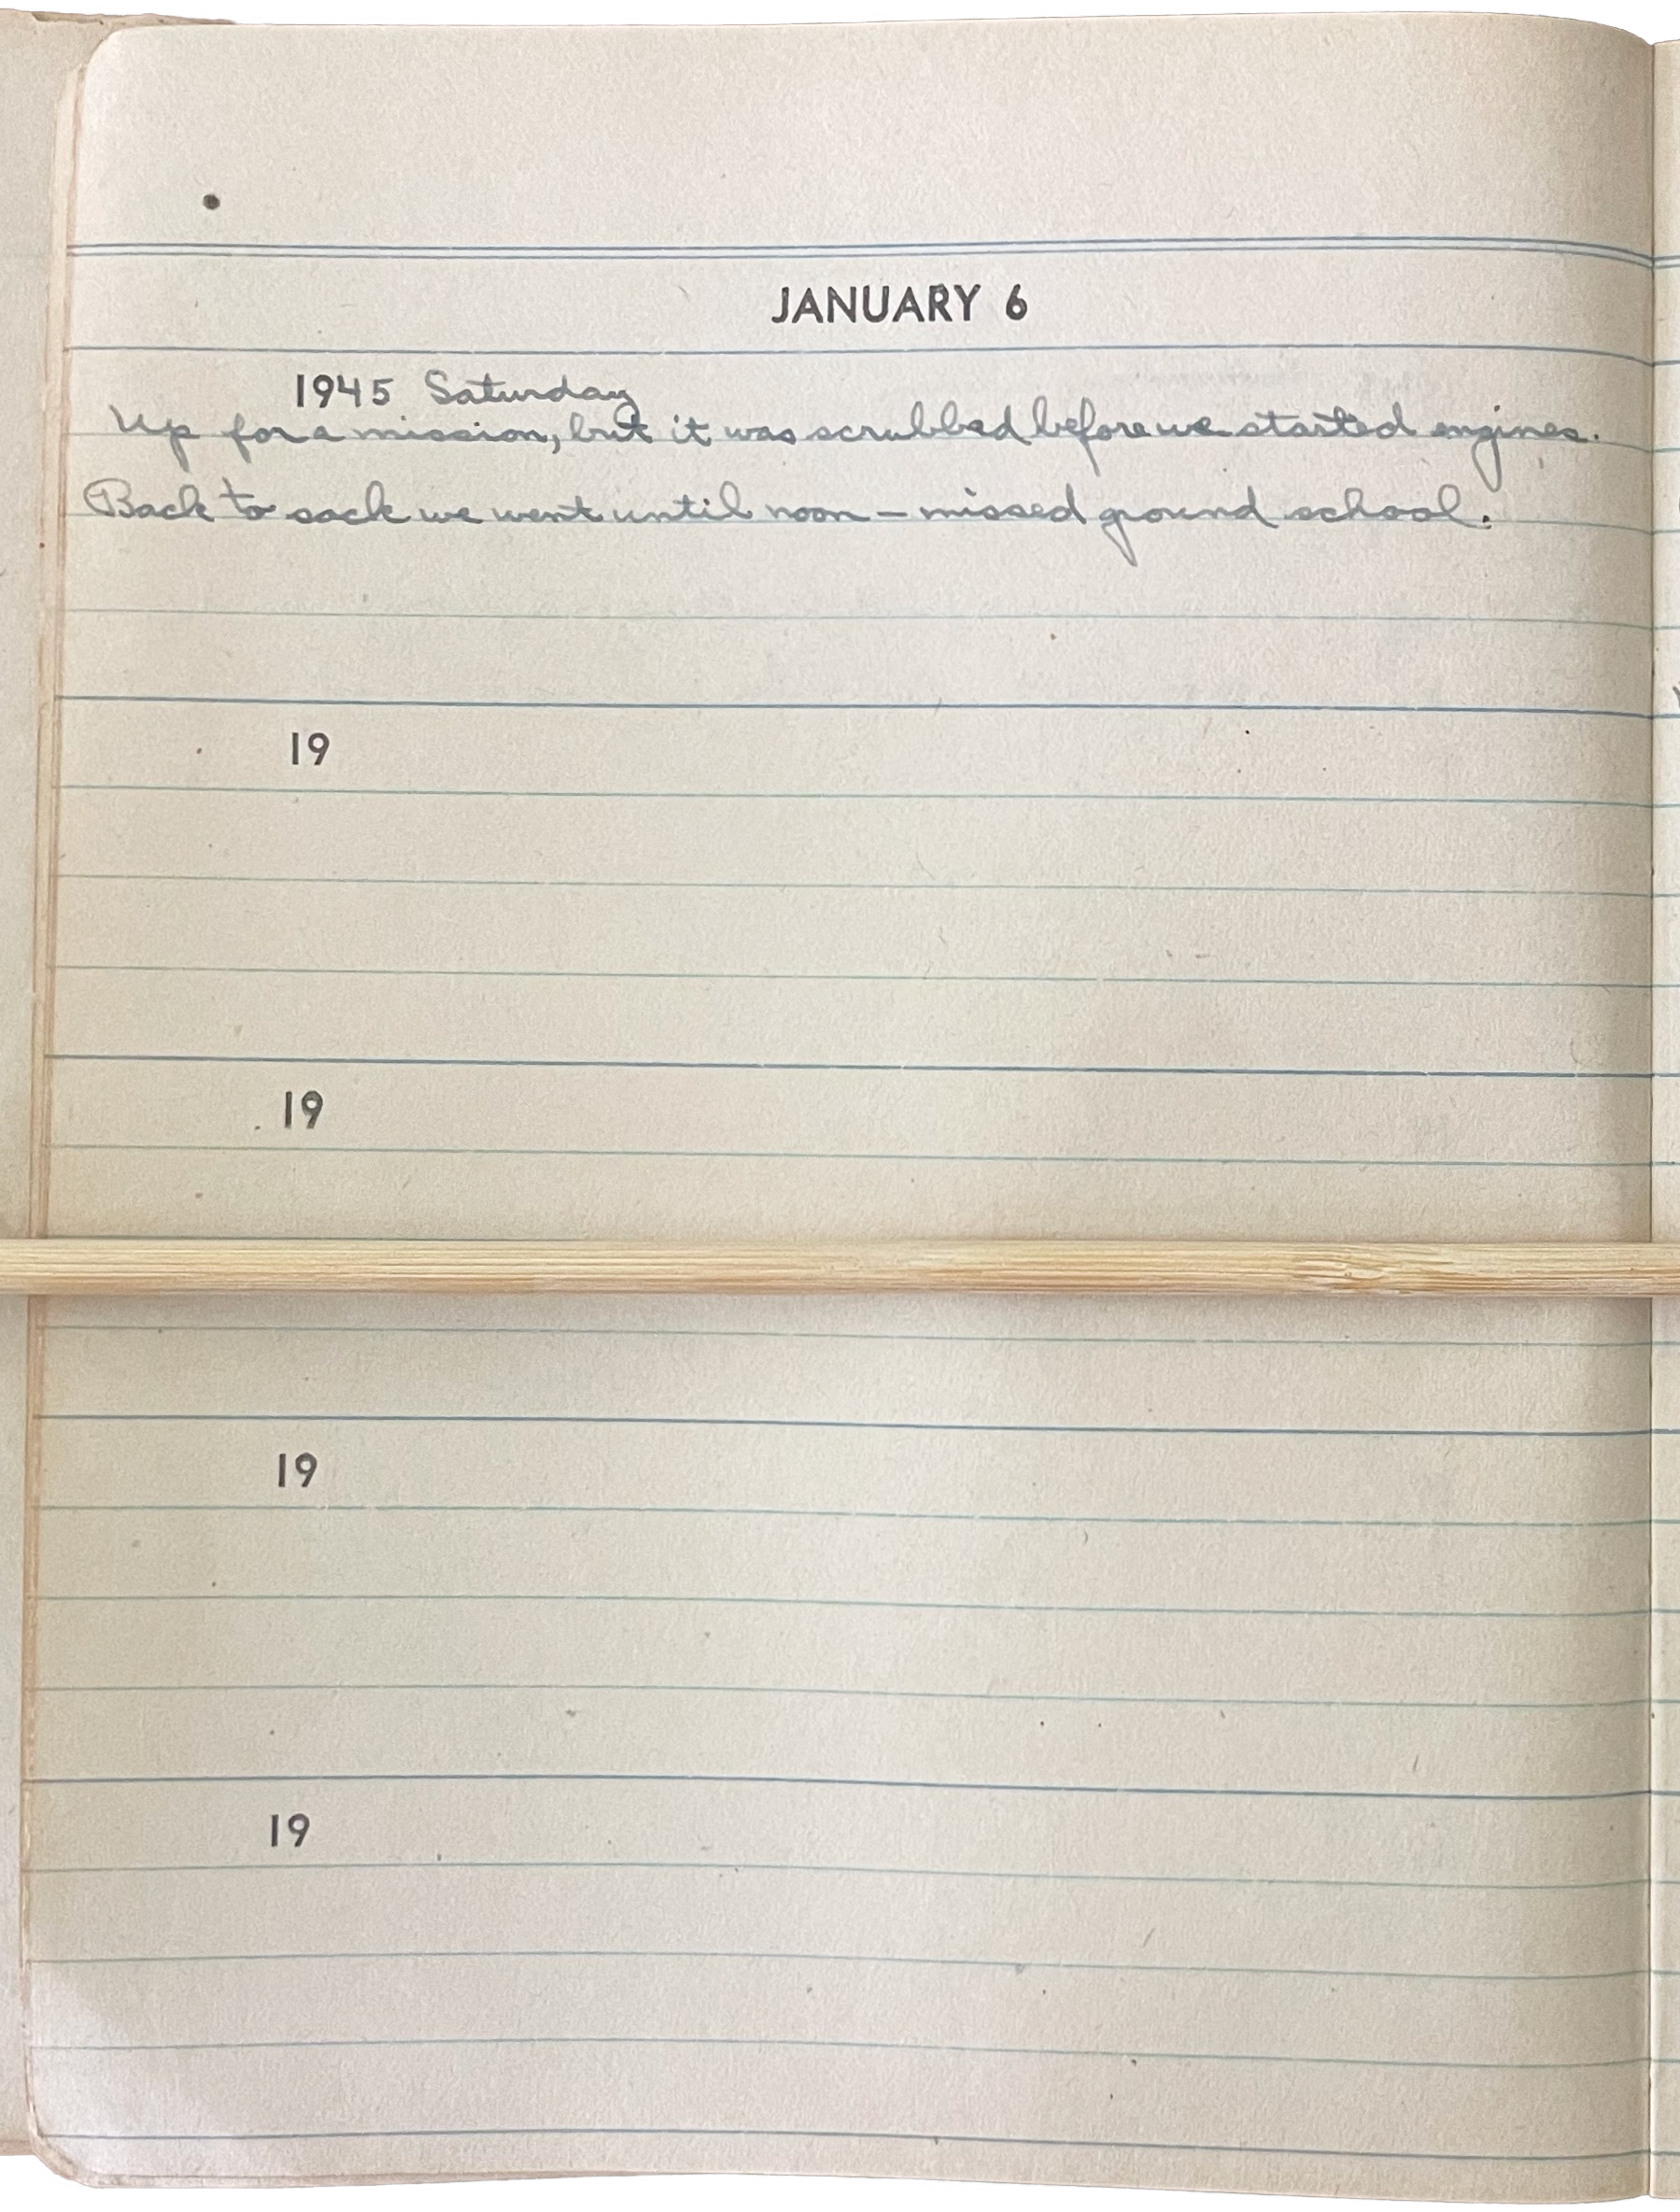 JANUARY 6
1945 Saturday
Up for a mission, but it was scrubbed before we started engines.
Back to sack we went until noon – missed ground school.
19
19
19
19